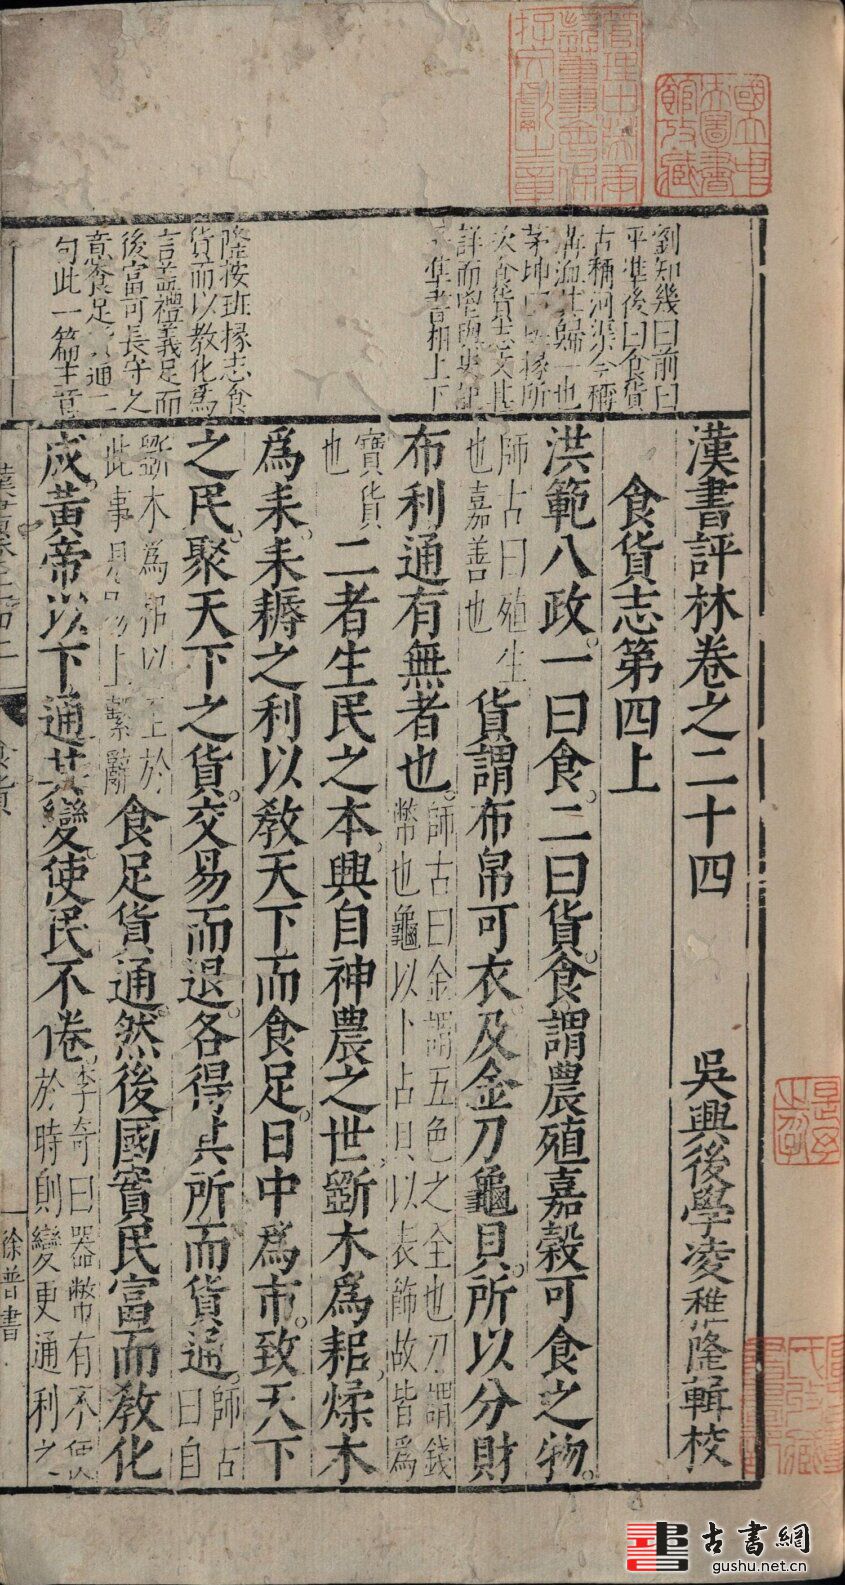 國立中央圖書館收藏
管理中英庚款董事會保存文獻之章
劉知幾曰前曰
平準後曰食貨
古稱河渠今稱
溝洫其歸一也
茅坤曰掾所
次食貨志文甚
詳而與史記
準書相上下
隆按班掾志食
貨而以教化爲
言蓋禮義足而
後富可長守之
意食足貨通二
句此一篇主意
漢書評林卷之二十四 吳興後學凌稚隆輯校
食貨志第四上
洪範八政。一曰食。二曰貨。食謂農殖嘉穀可食之物。
師古曰殖生也嘉善也 貨謂布帛可衣。及金刀龜貝。所以分財
布利通有無者也。師古曰金謂五色之金也刀謂錢幣也龜以卜占貝以表飾故皆爲
寶貨也 二者生民之本。興自神農之世。斲木爲耜。煣木
爲耒。耒耨之利以敎天下而食足。日中爲市。致天下
之民。聚天下之貨。交易而退。各得其所而貨通。師古曰自
斲木爲耜以至於此事見易上繫辭 食足貨通。然後國實民富而敎化
成。黃帝以下通其變。使民不倦。李奇曰器幣有不便於時則變更通利之
徐普書
古書網
gushu.net.cn